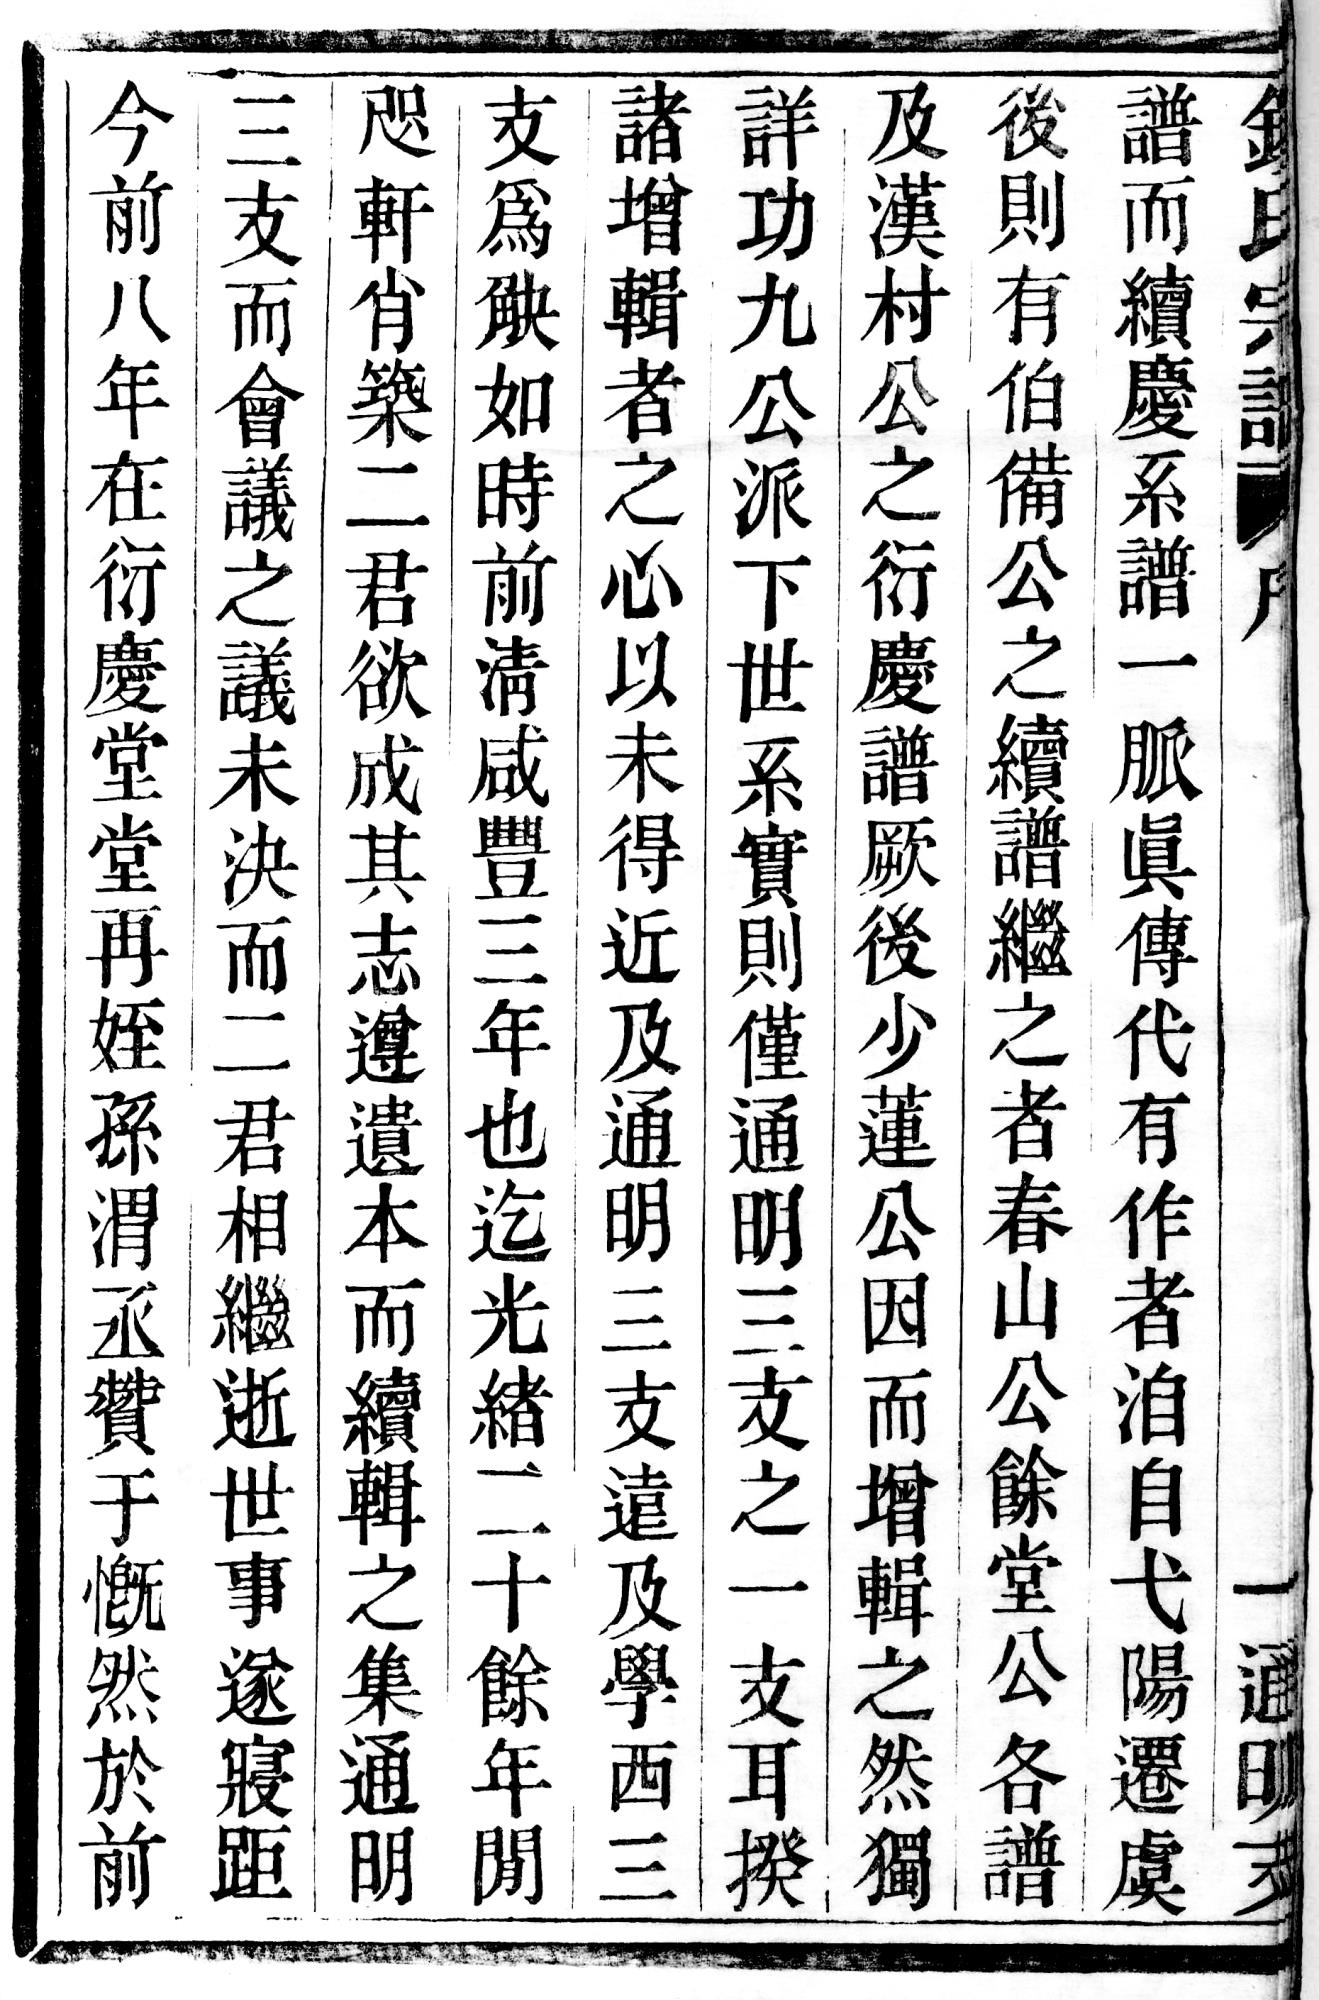 氏宗譜 一 通明支
譜而續慶系譜一脈眞傳代有作者洎自弋陽遷虞
後則有伯備公之續譜繼之者春山公餘堂公各譜
及漢村公之衍慶譜厥後少蓮公因而增輯之然獨
詳功九公派下世系實則僅通明三支之一支耳揆
諸增輯者之心以未得近及通明三支遠及學西三
支爲觖如時前淸咸豐三年也迄光緒二十餘年閒
咫軒肖築二君欲成其志遵遺本而續輯之集通明
三支而會議之議未決而二君相繼逝世事遂寢距
今前八年在衍慶堂堂再姪孫渭丞贊于慨然於前